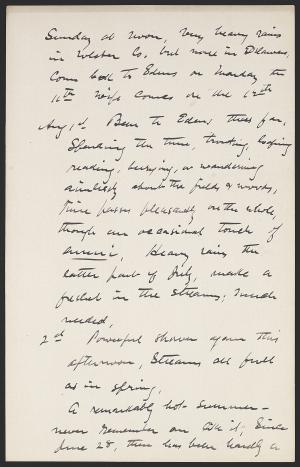 Sunday at noon, Very heavy rains
in Ulster Co, but none in Delaware.
Come back to Edens on Monday the
16th Wife comes on the 17th
Aug 1st. Been to Edens thus far,
Spending the time, trouting, loafing
reading, berrying, or wandering
aimlessly about the fields & woods,
Time passes pleasantly on the whole,
though an occasional touch of
ennui, Heavy rains the
latter part of July, make a
freshet in the streams; much
needed,
2d Powerful shower again this
afternoon, Streams all full
as in spring.
A remarkably hot summer—
never remember one like it; Since
June 28, there has been hardly a